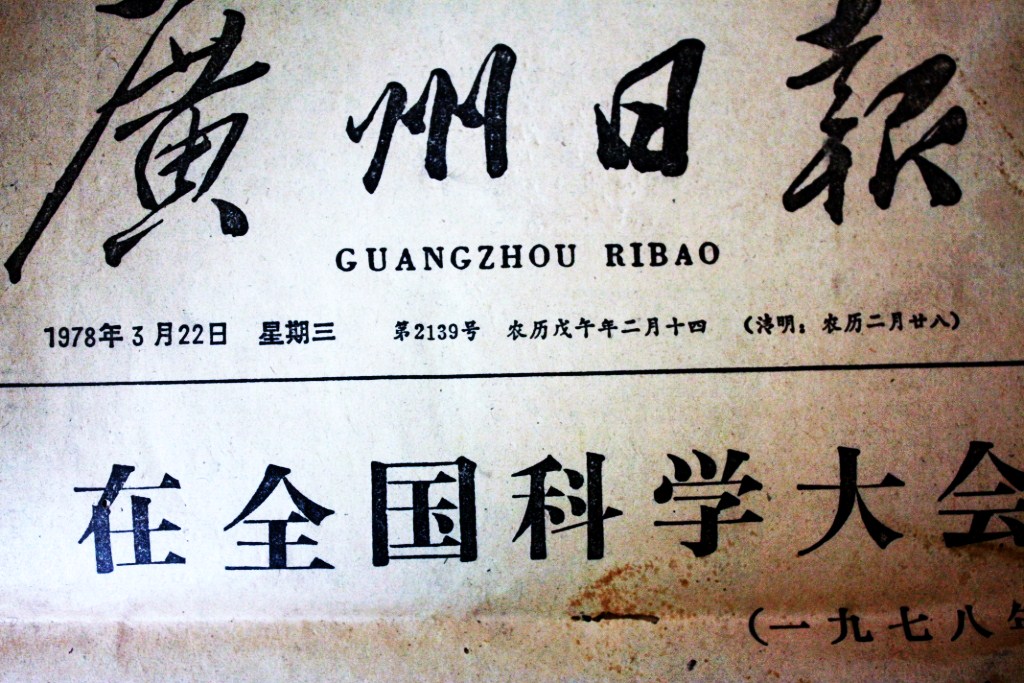 廣州日報
GUANGZHOU RIBAO
1978年3月22日 星期三 第2139号 农历戊午年二月十四 (清明：农历二月廿八)
在全国科学大会
(一九七八年